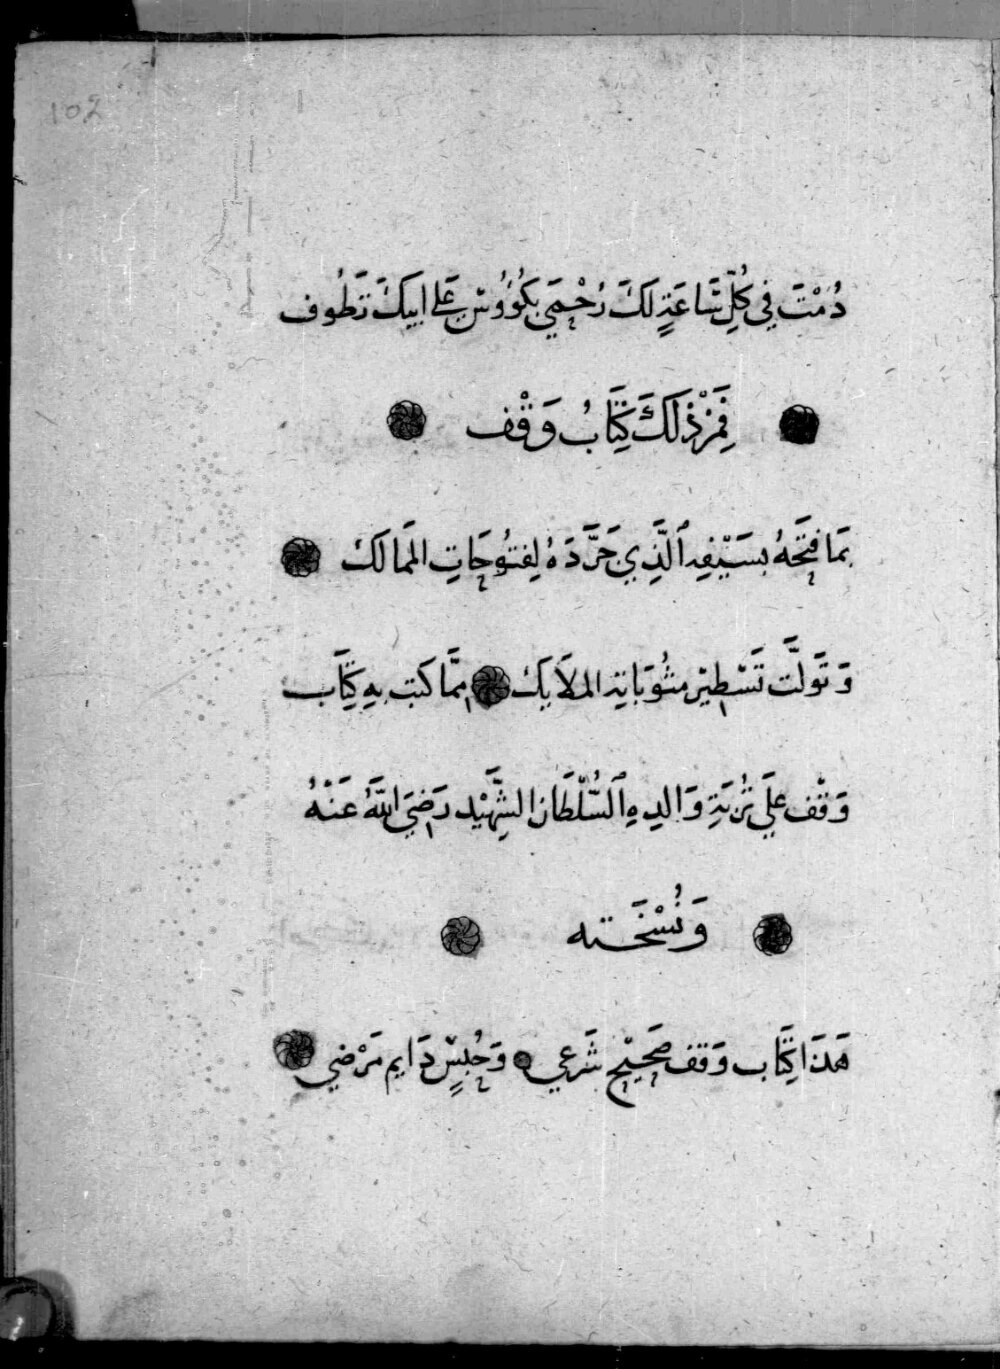 102
دُمْتَ فِي كُلِّ سَاعَةٍ لَكَ رُحْمَي بِكُؤُوسٍ عَلَى ابيكَ تَطُوف
فَمِنْ ذَلَكَ كِتَابُ وَقْف
بمَا فتَحَهُ بسَيْفِهِ ٱلَّذِي جَرَّدَهُ لِفتُوحَاتِ الممَالك
وَتَولَّت تَسْطِيْر مثُوبَاتِهِ الملَايك ممَّا كتب بهِ كِتَاب
وَقْف عَلَي تُربَةِ وَالِدِهِ ٱلسُّلْطَان الشَّهِيْد رَضِيَ اللَّهُ عَنْهُ
وَنُسْخَته
هَذَا كِتَاب وَقف صَحِيْح شَرعي وَحُبسٍ دَايم مَرْضي